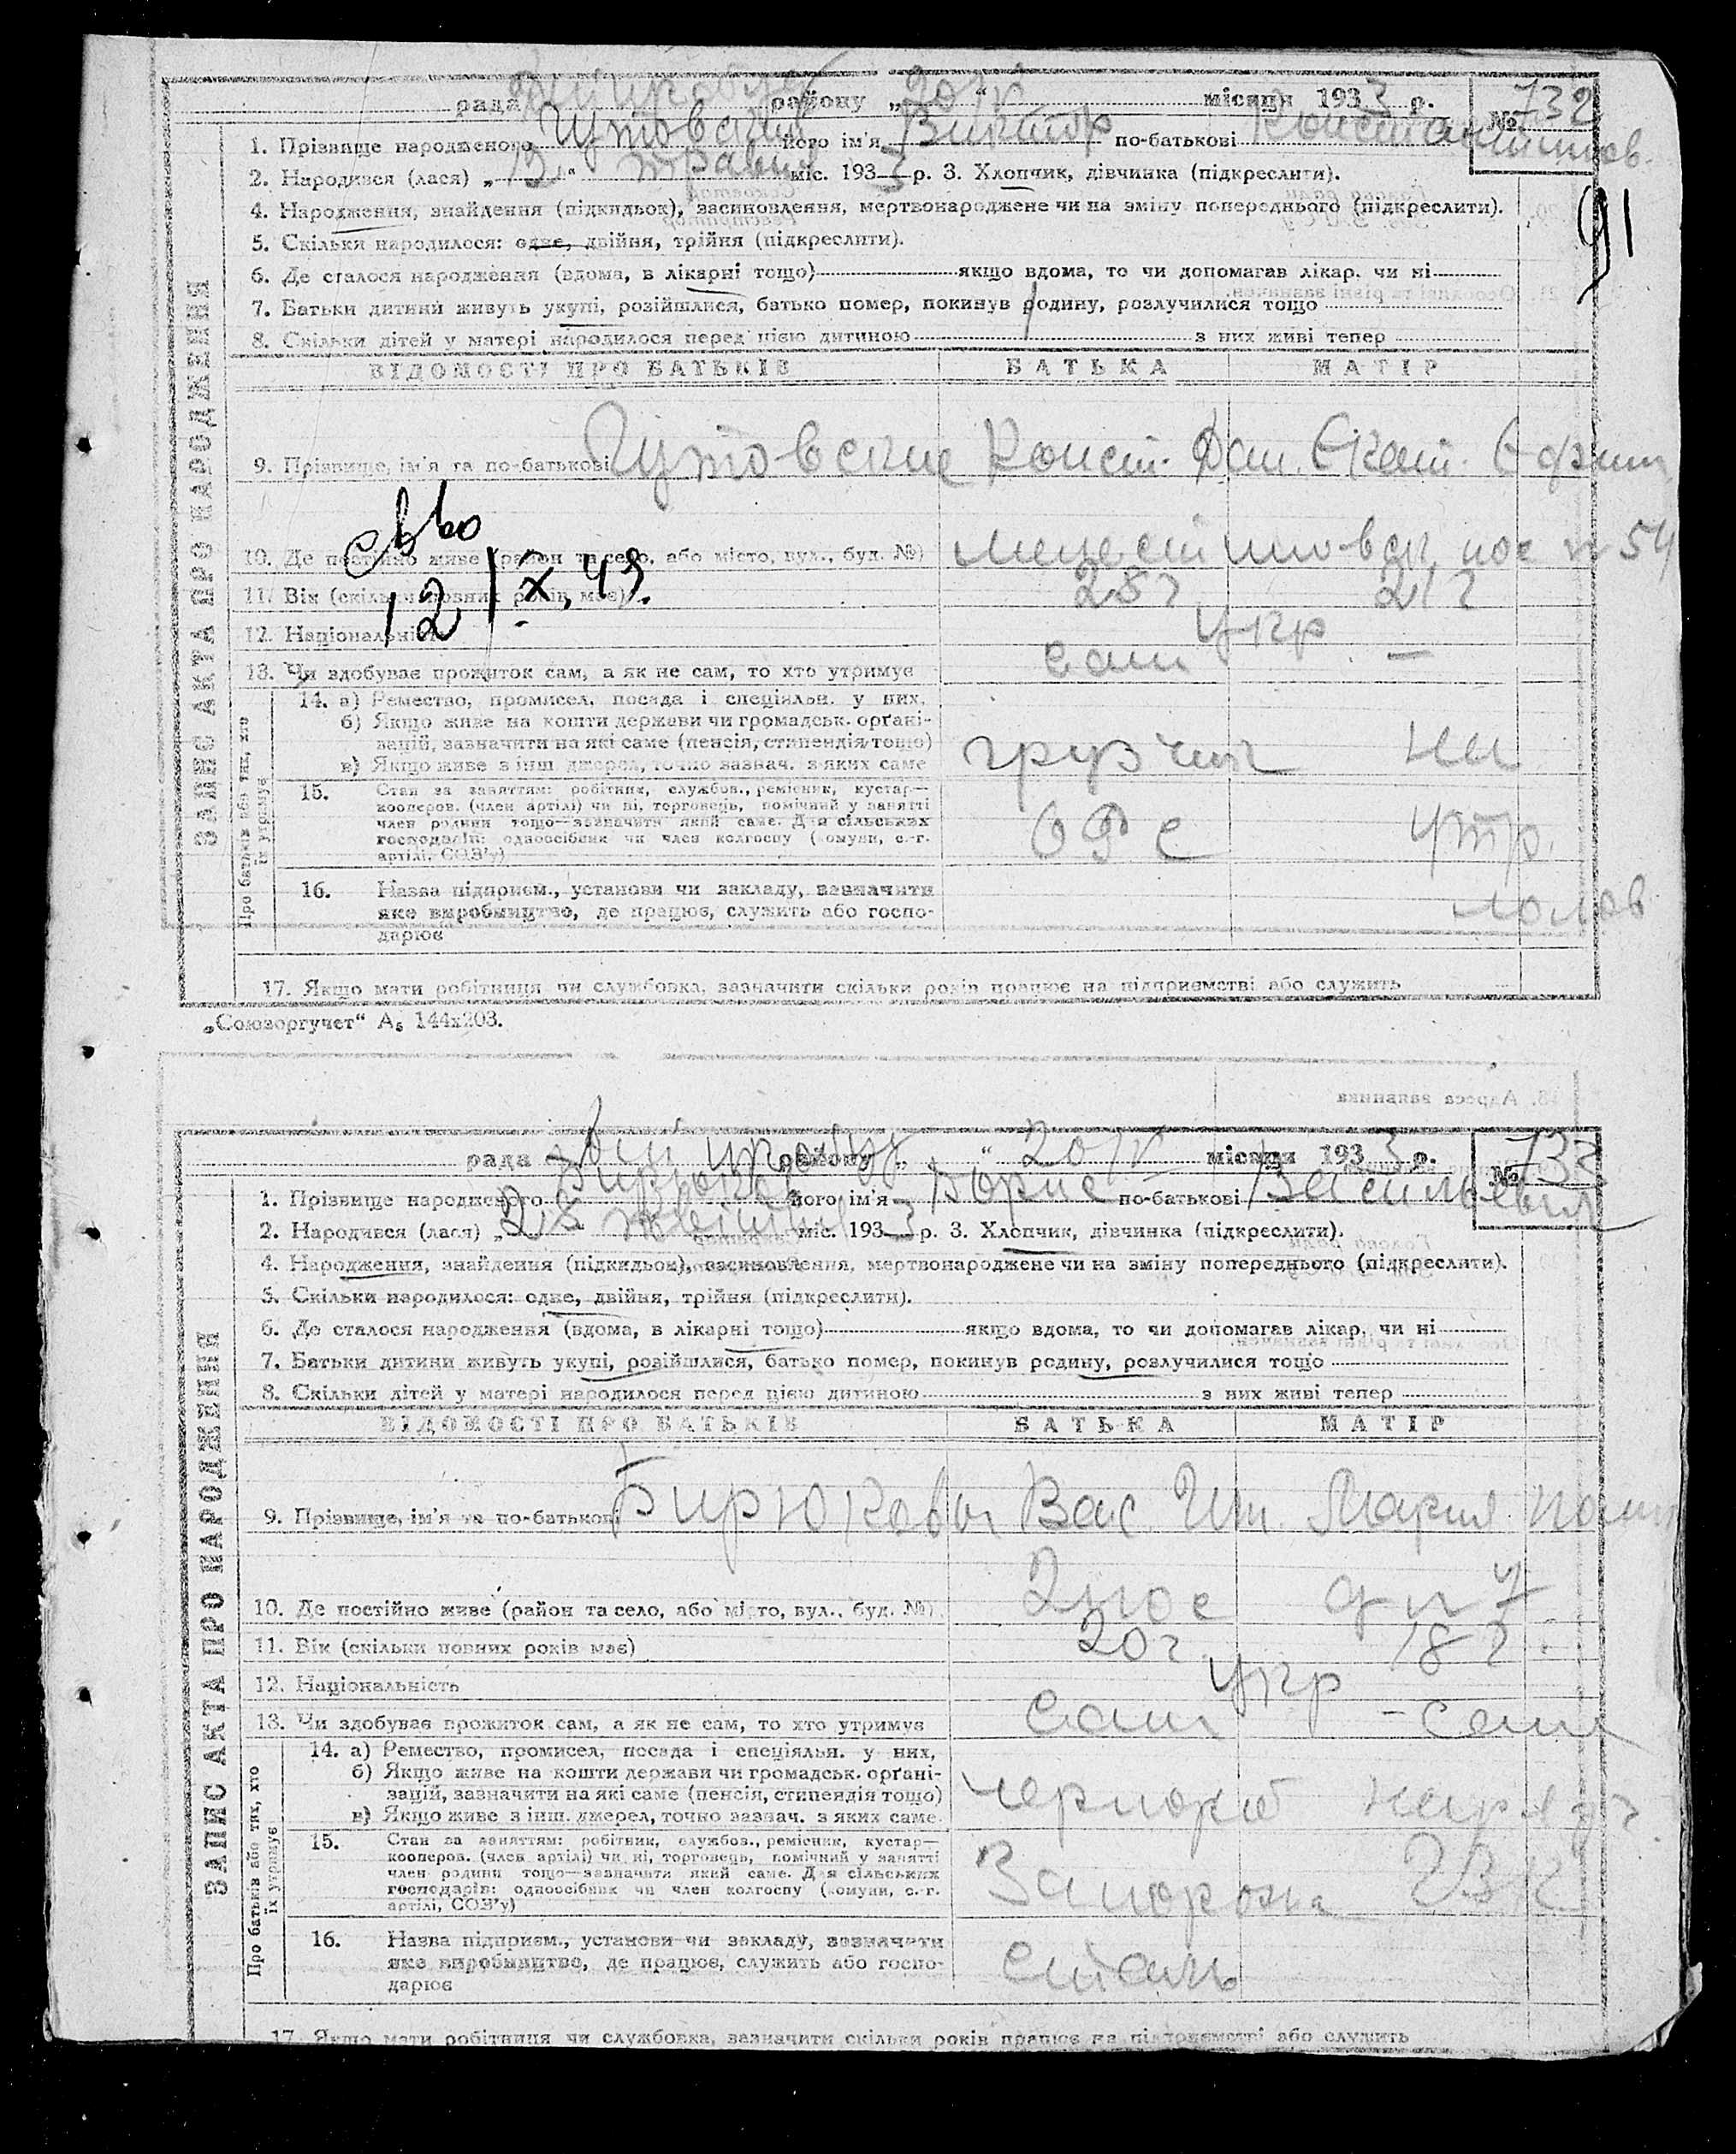 рада району „20/V“ місяця 1933 р. № 732
1. Прізвище народженого його ім'я Виктор по-батькові Константинов.
2. Народився (лася) „ “ травня міс. 1933 р. 3. Хлопчик, дівчинка (підкреслити).
91
4. Народження, знайдення (підкидьок), засиновлення, мертвонароджене чи на зміну попереднього (підкреслити).
5. Скільки народилося: одне, двійня, трійня (підкреслити).
6. Де сталося народження (вдома, в лікарні тощо) якщо вдома, то чи допомагав лікар. чи ні
7. Батьки дитини живуть укупі, розійшлися, батько помер, покинув родину, розлучилися тощо
8. Скільки дітей у матері народилося перед цією дитиною з них живі тепер
ЗАПИС АКТА ПРО НАРОДЖЕННЯ
ВІДОМОСТІ ПРО БАТЬКІВ БАТЬКА МАТІР
9. Прізвище, ім'я та по-батькові Конст. Дан. Екат. Ефим
св-во
10. Де постійно живе (район та село, або місто, вул., буд. №) пос 54
11. Вік (скільки повних років має) 28 г 21 г
12/X, 49.
12. Національність укр
13. Чи здобуває прожиток сам, а як не сам, то хто утримує сам —
Про батьків або тих, хто їх утримує
14. а) Ремество, промисел, посада і спеціяльн. у них,
б) Якщо живе на кошти держави чи громадськ. органі-
зацій, зазначити на які саме (пенсія, стипендія тощо)
в) Якщо живе з інш. джерел, точно зазнач. з яких саме
грузчик
15. Стан за заняттям: робітник, службов., ремісник, кустар—
кооперов. (член артілі) чи ні, торговець, помічний у занятті
член родини тощо—зазначити який саме. Для сільських
господарів: одноосібник чи член колгоспу (комуни, с.-г.
артілі, СОЗ'у)
утр.
16. Назва підприєм., установи чи закладу, зазначити
яке виробництво, де працює, служить або госпо-
дарює
17. Якщо мати робітниця чи службовка, зазначити скільки років працює на підприємстві або служить
„Союзоргучет“ А₅ 144х203.
18. Адреса заявника
рада району „ “ 20/V місяця 1933 р. №
1. Прізвище народженого Бирюков його ім'я Борис по-батькові Васильевич
2. Народився (лася) „ міс. 1933 р. 3. Хлопчик, дівчинка (підкреслити).
4. Народження, знайдення (підкидьок), засиновлення, мертвонароджене чи на зміну попереднього (підкреслити).
5. Скільки народилося: одне, двійня, трійня (підкреслити).
6. Де сталося народження (вдома, в лікарні тощо) якщо вдома, то чи допомагав лікар. чи ні
7. Батьки дитини живуть укупі, розійшлися, батько помер, покинув родину, розлучилися тощо
8. Скільки дітей у матері народилося перед цією дитиною з них живі тепер
ЗАПИС АКТА ПРО НАРОДЖЕННЯ
ВІДОМОСТІ ПРО БАТЬКІВ БАТЬКА МАТІР
9. Прізвище, ім'я та по-батькові Бирюковы Вас. Мария
10. Де постійно живе (район та село, або місто, вул., буд. №) 2 пос
11. Вік (скільки повних років має) 20 г 18 г
12. Національність укр
13. Чи здобуває прожиток сам, а як не сам, то хто утримує сам - сам
Про батьків або тих, хто їх утримує
14. а) Ремество, промисел, посада і спеціяльн. у них,
б) Якщо живе на кошти держави чи громадськ. органі-
зацій, зазначити на які саме (пенсія, стипендія тощо)
в) Якщо живе з інш. джерел, точно зазнач. з яких саме
чернораб
15. Стан за заняттям: робітник, службов., ремісник, кустар—
кооперов. (член артілі) чи ні, торговець, помічний у занятті
член родини тощо—зазначити який саме. Для сільських
господарів: одноосібник чи член колгоспу (комуни, с.-г.
артілі, СОЗ'у)
Запорож
16. Назва підприєм., установи чи закладу, зазначити
яке виробництво, де працює, служить або госпо-
дарює
сталь
17. Якщо мати робітниця чи службовка, зазначити скільки років працює на підприємстві або служить